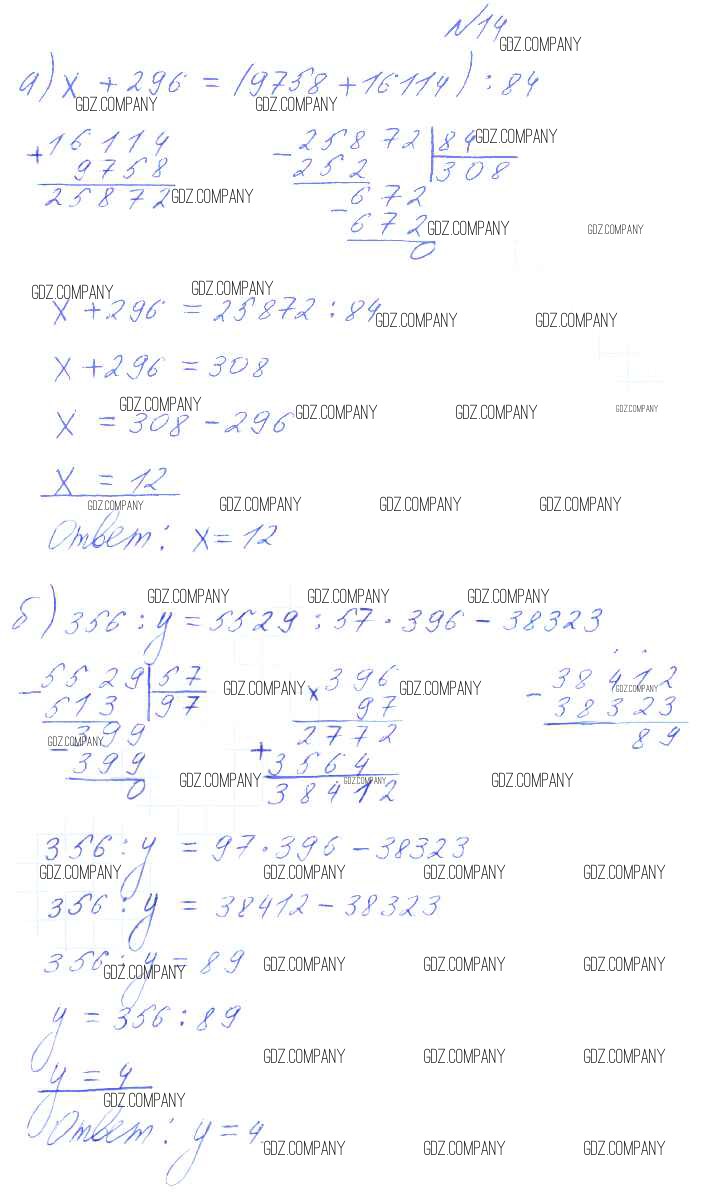 N14
GDZ.COMPANY
а) x + 296 = (9758 + 16114) : 84
GDZ.COMPANY GDZ.COMPANY
+ 16114
9758
25872
GDZ.COMPANY
- 25872 | 84
GDZ.COMPANY
252 | 308
- 672
672
GDZ.COMPANY GDZ.COMPANY
0
GDZ.COMPANY GDZ.COMPANY
x + 296 = 25872 : 84
GDZ.COMPANY GDZ.COMPANY
x + 296 = 308
GDZ.COMPANY GDZ.COMPANY GDZ.COMPANY GDZ.COMPANY
x = 308 - 296
x = 12
GDZ.COMPANY GDZ.COMPANY GDZ.COMPANY GDZ.COMPANY
Ответ: x = 12
GDZ.COMPANY GDZ.COMPANY GDZ.COMPANY
б) 356 : y = 5529 : 57 · 396 - 38323
- 5529 | 57
513 | 97
- 399
399
0
GDZ.COMPANY GDZ.COMPANY GDZ.COMPANY
x 396
97
2772
+ 3564
38412
GDZ.COMPANY GDZ.COMPANY
- 38412
38323
89
GDZ.COMPANY GDZ.COMPANY
356 : y = 97 · 396 - 38323
GDZ.COMPANY GDZ.COMPANY GDZ.COMPANY GDZ.COMPANY
356 : y = 38412 - 38323
356 : y = 89
GDZ.COMPANY GDZ.COMPANY GDZ.COMPANY GDZ.COMPANY
y = 356 : 89
GDZ.COMPANY GDZ.COMPANY GDZ.COMPANY
y = 4
GDZ.COMPANY
Ответ: y = 4
GDZ.COMPANY GDZ.COMPANY GDZ.COMPANY